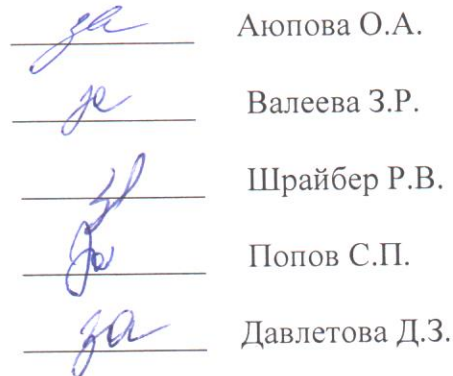 за Аюпова О.А.
за Валеева З.Р.
Шрайбер Р.В.
За Попов С.П.
за Давлетова Д.З.